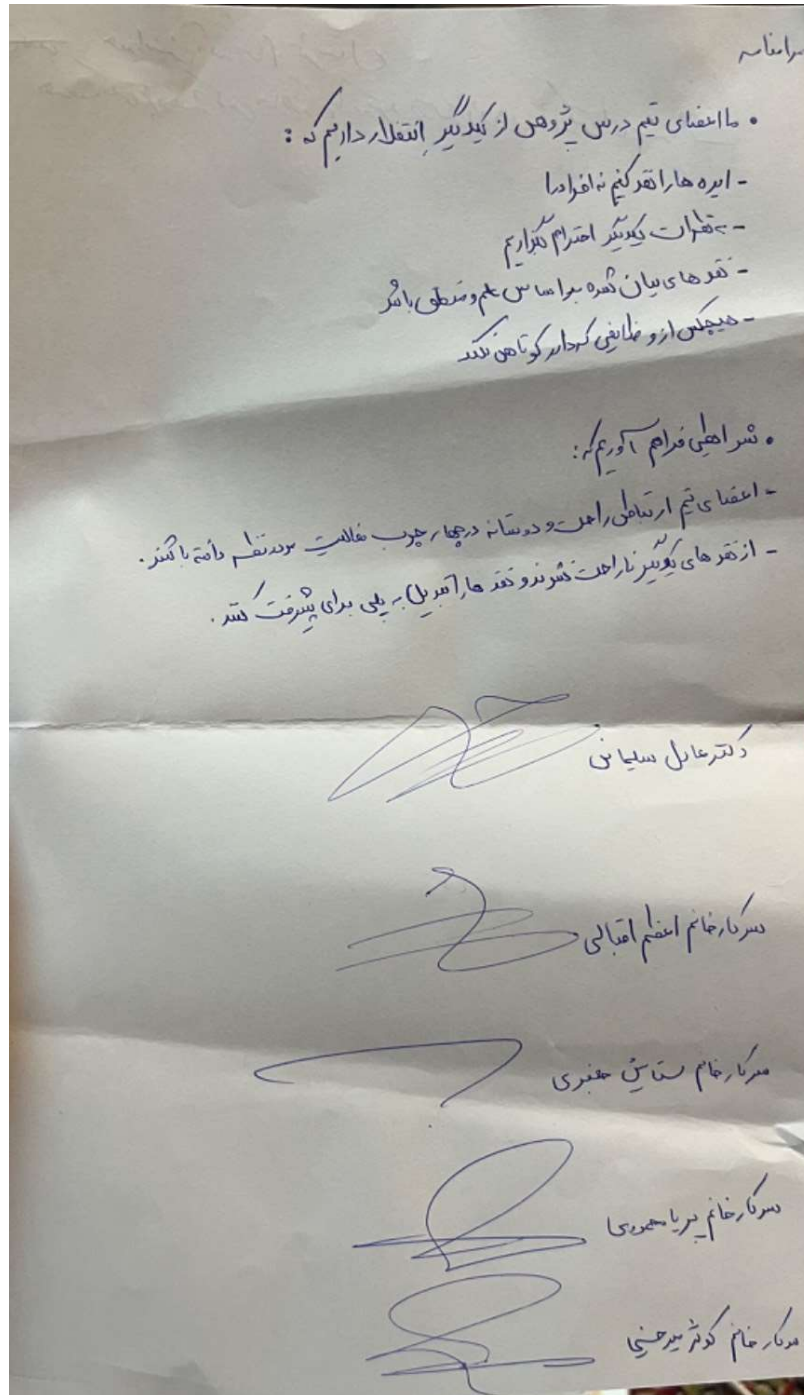 مرامنامه
• ما اعضای تیم درس پژوهی از یکدیگر انتظار داریم که :
- ایده ها را نقد کنیم نه افراد را
- به نظرات یکدیگر احترام بگذاریم
- نقد های بیان شده بر اساس علم و منطق باشد
- هیچکس از وظایفی که دارد کوتاهی نکند
• شرایطی فراهم آوریم که:
- اعضای تیم ارتباطی راحت و دوستانه در چهار چوب فعالیت مورد نظر داشته باشند.
- از نقد های یکدیگر ناراحت نشوند و نقد ها را تبدیل به پلی برای پیشرفت کنند.
دکتر عادل سلیمانی
سرکار خانم اعظم اقبالی
سرکار خانم ستایش
سرکار خانم پریا محمودی
سرکار خانم کوثر میرحسینی